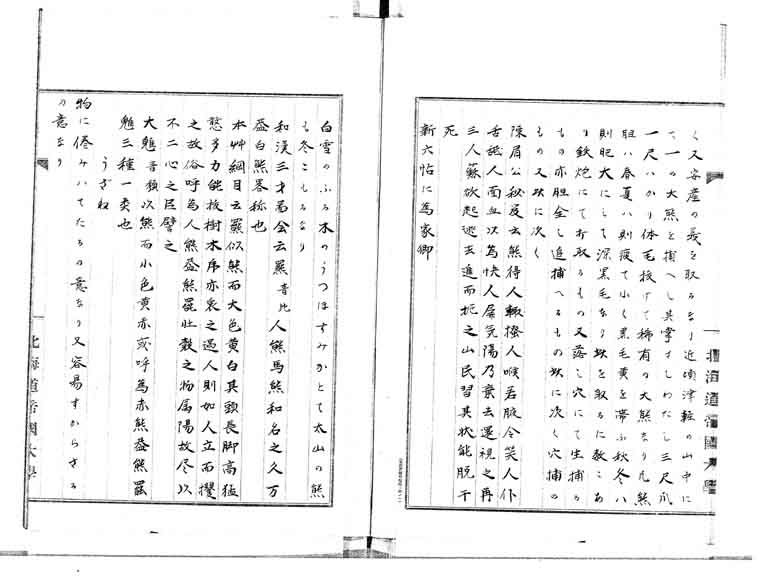 く又安産の義を取るなり近頃津軽の山中に
て一の大熊を捕へし其掌さしわたし三尺爪
一尺ハかり体毛抜けて稀有の大熊なり凡熊
胆ハ春夏ハ則痩て小く黒毛黄を帯ふ秋冬ハ
則肥大にして深黒毛なり坎を取るに数こあ
り鉄炮にて打取るもの又落し穴にて生捕る
もの亦胆全し追捕へるもの坎に次く穴捕の
もの又坎に次く
陳眉公秘笈云熊得人輙撥人喉若腋令笑人仆
舌舐人面血以為快人屏気陽乃棄去還視之再
三人蘇欲起逃去進而扼之山民習其状能脱于
死
新六帖に為家卿
白雪のふる木のうつほすみかとて太山の熊
も冬こもるなり
和漢三才図会云羆音比人熊馬熊和名之久万
益白熊畧称也
本艸綱目云羆似熊而大色黄白其頭長脚高猛
憨多力能抜樹木虎亦畏之遇人則如人立而攫
之故俗呼為人熊益熊羆壮毅之物属陽故尽以
不二心之臣譬之
大魋音頽以熊而小色黄赤或呼為赤熊益熊羆
魋三種一類也
うざね
物に倦みハてたるの意なり又容易すからざる
の意なり
北海道帝國大學
北海道帝國大學